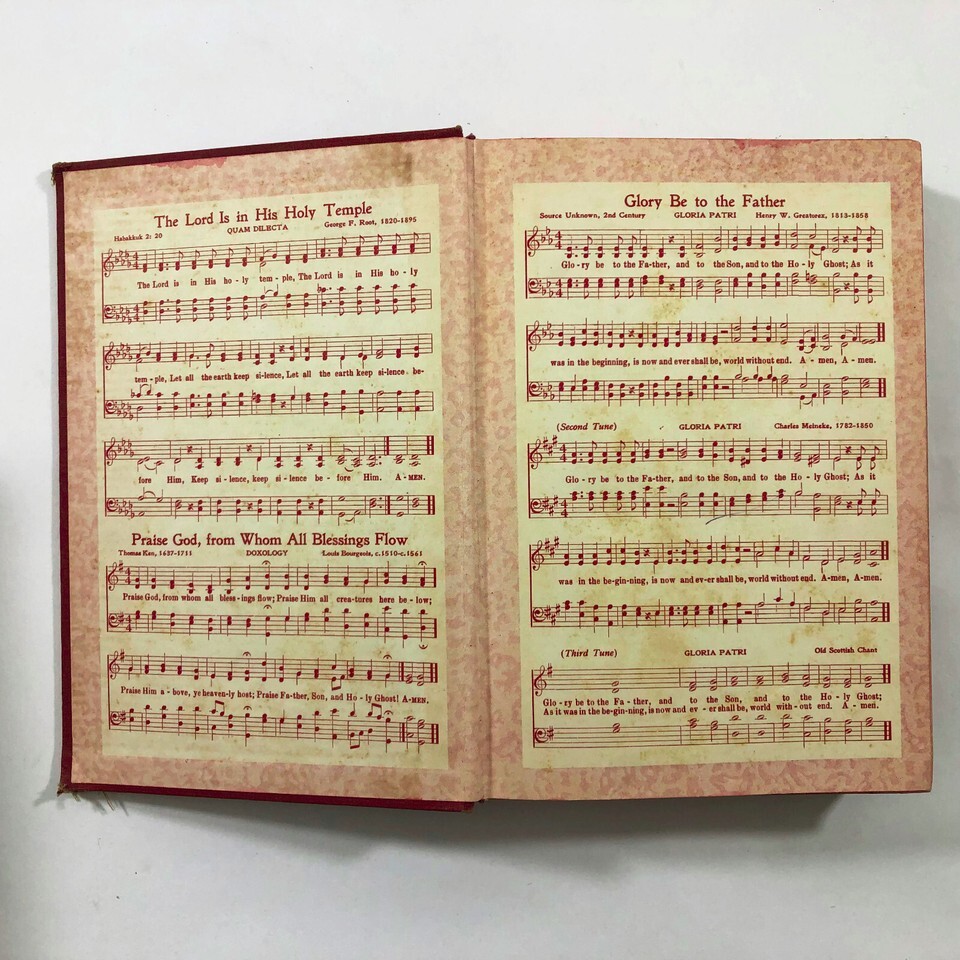 The Lord Is in His Holy Temple
Habakkuk 2: 20 QUAM DILECTA George F. Root, 1820-1895
The Lord is in His ho - ly tem - ple, The Lord is in His ho - ly
tem - ple, Let all the earth keep si-lence, Let all the earth keep si-lence be-
fore Him, Keep si - lence, keep si - lence be - fore Him. A-MEN.
Praise God, from Whom All Blessings Flow
Thomas Ken, 1637-1711 DOXOLOGY Louis Bourgeois, c.1510-c.1561
Praise God, from whom all bless - ings flow; Praise Him all crea-tures here be - low;
Praise Him a - bove, ye heaven-ly host; Praise Fa-ther, Son, and Ho - ly Ghost! A-MEN.
Glory Be to the Father
Source Unknown, 2nd Century GLORIA PATRI Henry W. Greatorex, 1813-1858
Glo - ry be to the Fa-ther, and to the Son, and to the Ho - ly Ghost; As it
was in the beginning, is now and ever shall be, world without end. A - men, A - men.
(Second Tune) GLORIA PATRI Charles Meineke, 1782-1850
Glo - ry be to the Fa-ther, and to the Son, and to the Ho - ly Ghost; As it
was in the be-gin-ning, is now and ev-er shall be, world without end. A-men, A-men.
(Third Tune) GLORIA PATRI Old Scottish Chant
Glo - ry be to the Fa - ther, and to the Son, and to the Ho - ly Ghost;
As it was in the be-gin-ning, is now and ev - er shall be, world with-out end. A - men.